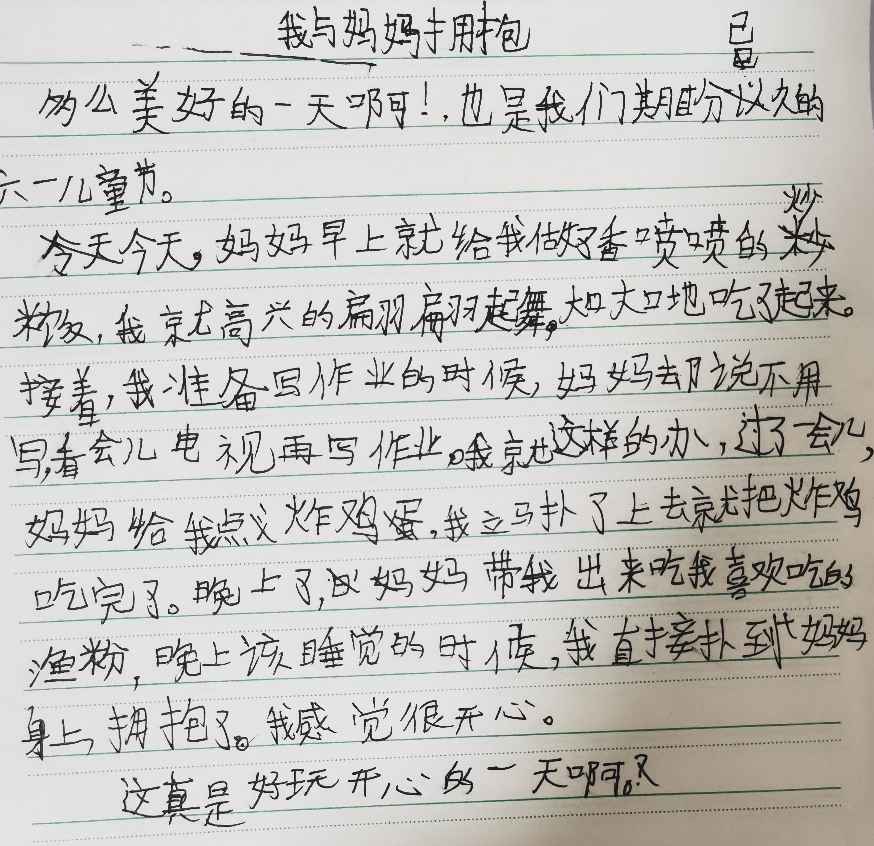 我与妈妈拥抱
已
多么美好的一天啊！，也是我们期盼以久的
六一儿童节。
炒
今天今天，妈妈早上就给我做好香喷喷的
粉饭，我就高兴的扁羽扁羽起舞，大口大口地吃了起来。
接着，我准备写作业的时候，妈妈却说不用
写，看会儿电视再写作业。我就这样的办，过了一会儿，
妈妈给我点义炸鸡蛋，我立马扑了上去就把炸鸡
吃完了。晚上了，妈妈带我出来吃我喜欢吃的
渔粉，晚上该睡觉的时候，我直接扑到妈妈
身上，拥抱了。我感觉很开心。
这真是好玩开心的一天啊。